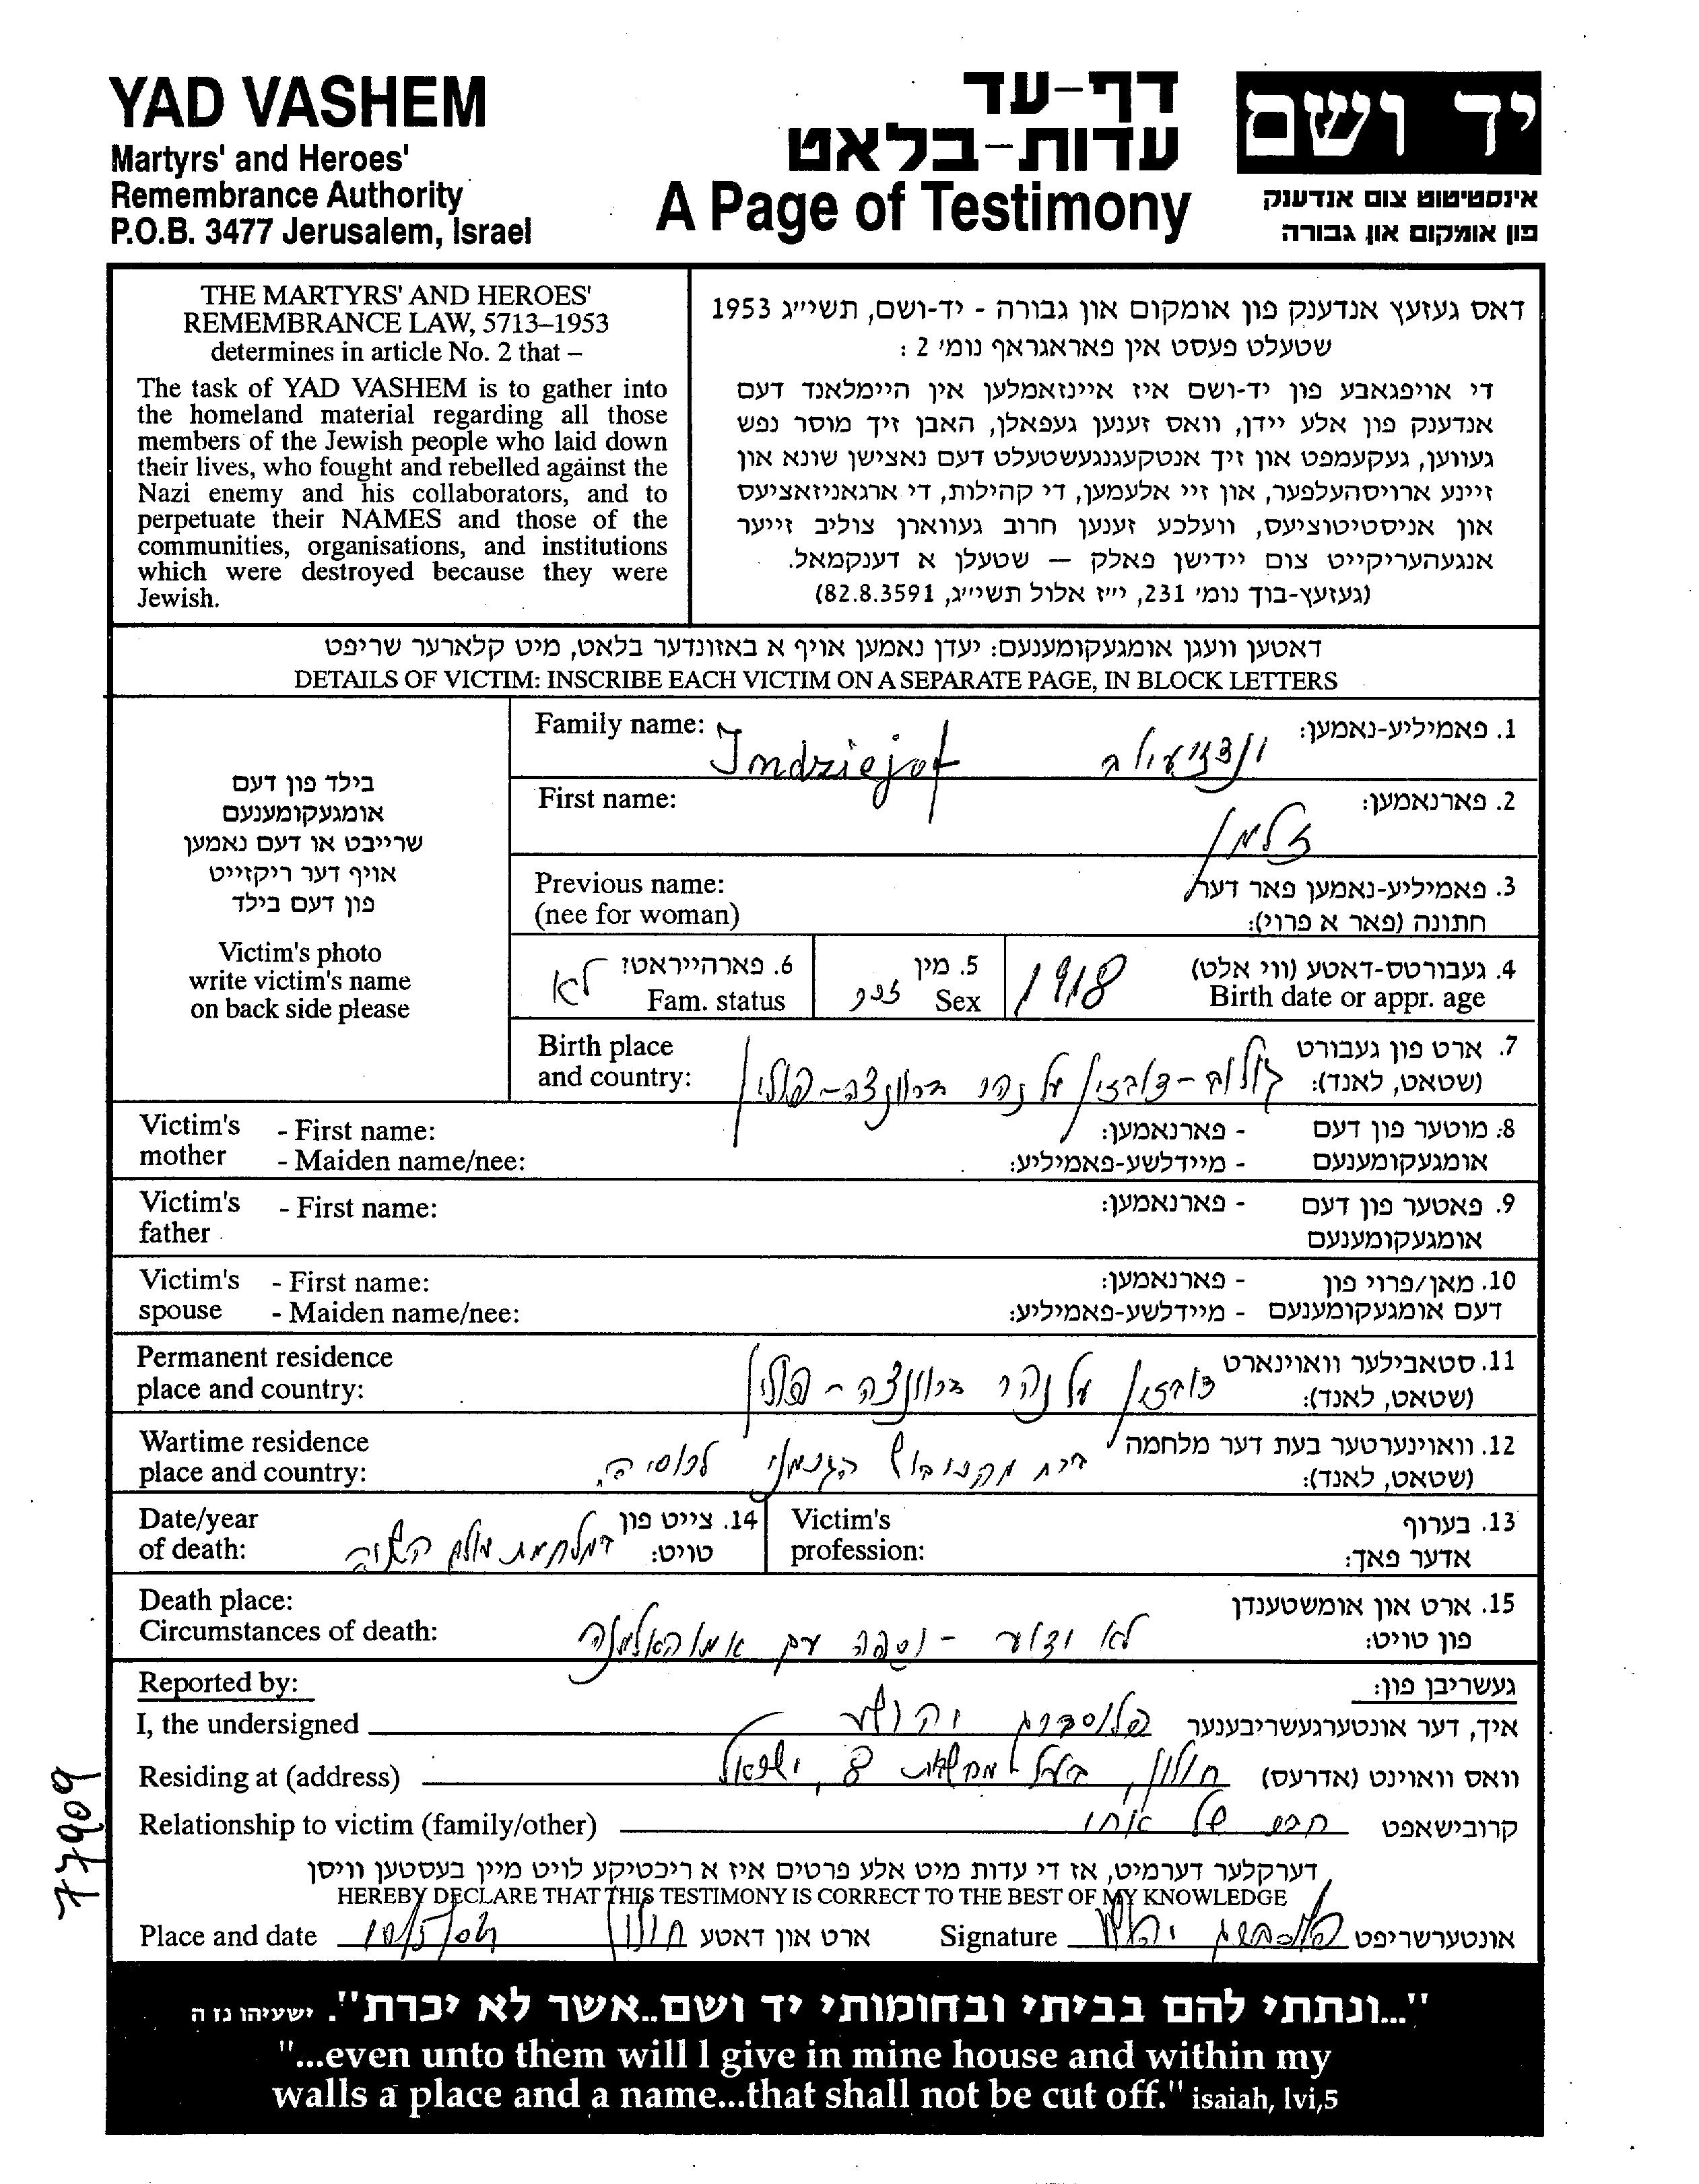 YAD VASHEM
Martyrs' and Heroes'
Remembrance Authority
P.O.B. 3477 Jerusalem, Israel
דף-עד
עדות-בלאט
A Page of Testimony
יד ושם
אינסטיטוט צום אנדענק
פון אומקום און גבורה
THE MARTYRS' AND HEROES'
REMEMBRANCE LAW, 5713–1953
determines in article No. 2 that –
The task of YAD VASHEM is to gather into
the homeland material regarding all those
members of the Jewish people who laid down
their lives, who fought and rebelled against the
Nazi enemy and his collaborators, and to
perpetuate their NAMES and those of the
communities, organisations, and institutions
which were destroyed because they were
Jewish.
דאס געזעץ אנדענק פון אומקום און גבורה - יד-ושם, תשי״ג 1953
שטעלט פעסט אין פאראגראף נומ׳ 2 :
די אויפגאבע פון יד-ושם איז איינזאמלען אין היימלאנד דעם
אנדענק פון אלע יידן, וואס זענען געפאלן, האבן זיך מוסר נפש
געווען, געקעמפט און זיך אנטקעגנגעשטעלט דעם נאצישן שונא און
זיינע ארויסהעלפער, און זיי אלעמען, די קהילות, די ארגאניזאציעס
און אניסטיטוציעס, וועלכע זענען חרוב געווארן צוליב זייער
אנגעהעריקייט צום יידישן פאלק – שטעלן א דענקמאל.
(געזעץ-בוך נומ׳ 231, י״ז אלול תשי״ג, 82.8.3591)
דאטען וועגן אומגעקומענעם: יעדן נאמען אויף א באזונדער בלאט, מיט קלארער שריפט
DETAILS OF VICTIM: INSCRIBE EACH VICTIM ON A SEPARATE PAGE, IN BLOCK LETTERS
בילד פון דעם
אומגעקומענעם
שרייבט או דעם נאמען
אויף דער ריקזייט
פון דעם בילד
Victim's photo
write victim's name
on back side please
Family name: Jndziejof 1. פאמיליע-נאמען:
First name: 2. פארנאמען: זלמן
Previous name: 3. פאמיליע-נאמען פאר דער
(nee for woman) חתונה (פאר א פרוי):
4. געבורטס-דאטע (ווי אלט) 1918 5. מין זכר 6. פארהייראט? לא
Birth date or appr. age Sex Fam. status
Birth place 7. ארט פון געבורט
and country: (שטאט, לאנד): גולוב-דוברזין על נהר דרוונצה - פולין
Victim's - First name: 8. מוטער פון דעם - פארנאמען:
mother - Maiden name/nee: אומגעקומענעם - מיידלשע-פאמיליע:
Victim's - First name: 9. פאטער פון דעם - פארנאמען:
father אומגעקומענעם
Victim's - First name: 10. מאן/פרוי פון - פארנאמען:
spouse - Maiden name/nee: דעם אומגעקומענעם - מיידלשע-פאמיליע:
Permanent residence 11. סטאבילער וואוינארט
place and country: (שטאט, לאנד): דוברזין על נהר דרוונצה - פולין
Wartime residence 12. וואוינערטער בעת דער מלחמה
place and country: (שטאט, לאנד): ברח מהכיבוש הגרמני לרוסיה
Date/year 14. צייט פון Victim's 13. בערוף
of death: טויט: במלחמת עולם השניה profession: אדער פאך:
Death place: 15. ארט און אומשטענדן
Circumstances of death: פון טויט: לא ידוע - נספה עם אמו האלמנה
Reported by: געשריבן פון:
I, the undersigned איך, דער אונטערגעשריבענער יהושע
Residing at (address) וואס וואוינט (אדרעס) חולון, בעל מחשבות 8, ישראל
Relationship to victim (family/other) קרובישאפט חבר של אחיו
דערקלער דערמיט, אז די עדות מיט אלע פרטים איז א ריכטיקע לויט מיין בעסטען וויסן
HEREBY DECLARE THAT THIS TESTIMONY IS CORRECT TO THE BEST OF MY KNOWLEDGE
Place and date ארט און דאטע חולון Signature אונטערשריפט
"...ונתתי להם בביתי ובחומותי יד ושם..אשר לא יכרת". ישעיהו נז ה
"...even unto them will I give in mine house and within my
walls a place and a name...that shall not be cut off." isaiah, lvi,5